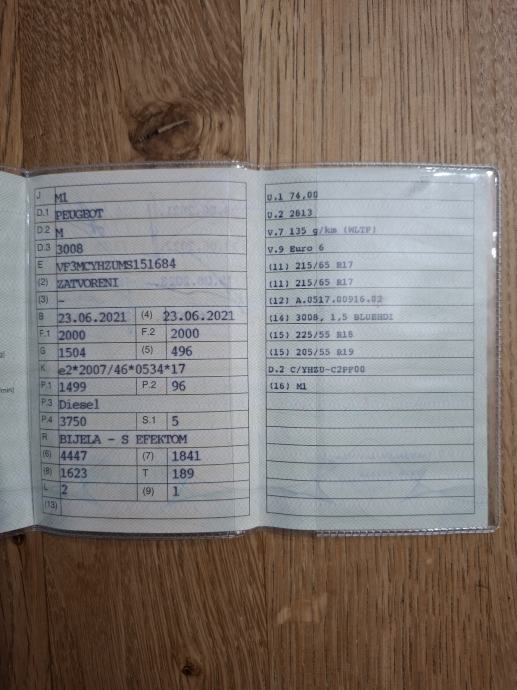 J M1
D.1 PEUGEOT
D.2 M
D.3 3008
E VF3MCYHZUMS151684
(2) ZATVORENI
(3) –
B 23.06.2021 (4) 23.06.2021
F.1 2000 F.2 2000
G 1504 (5) 496
K e2*2007/46*0534*17
P.1 1499 P.2 96
P.3 Diesel
P.4 3750 S.1 5
R BIJELA - S EFEKTOM
(6) 4447 (7) 1841
(8) 1623 T 189
L 2 (9) 1
(13)
U.1 74,00
U.2 2813
V.7 135 g/km (WLTP)
V.9 Euro 6
(11) 215/65 R17
(11) 215/65 R17
(12) A.0517.00916.02
(14) 3008, 1,5 BLUEHDI
(15) 225/55 R18
(15) 205/55 R19
D.2 C/YHZ0-C2PF00
(16) M1